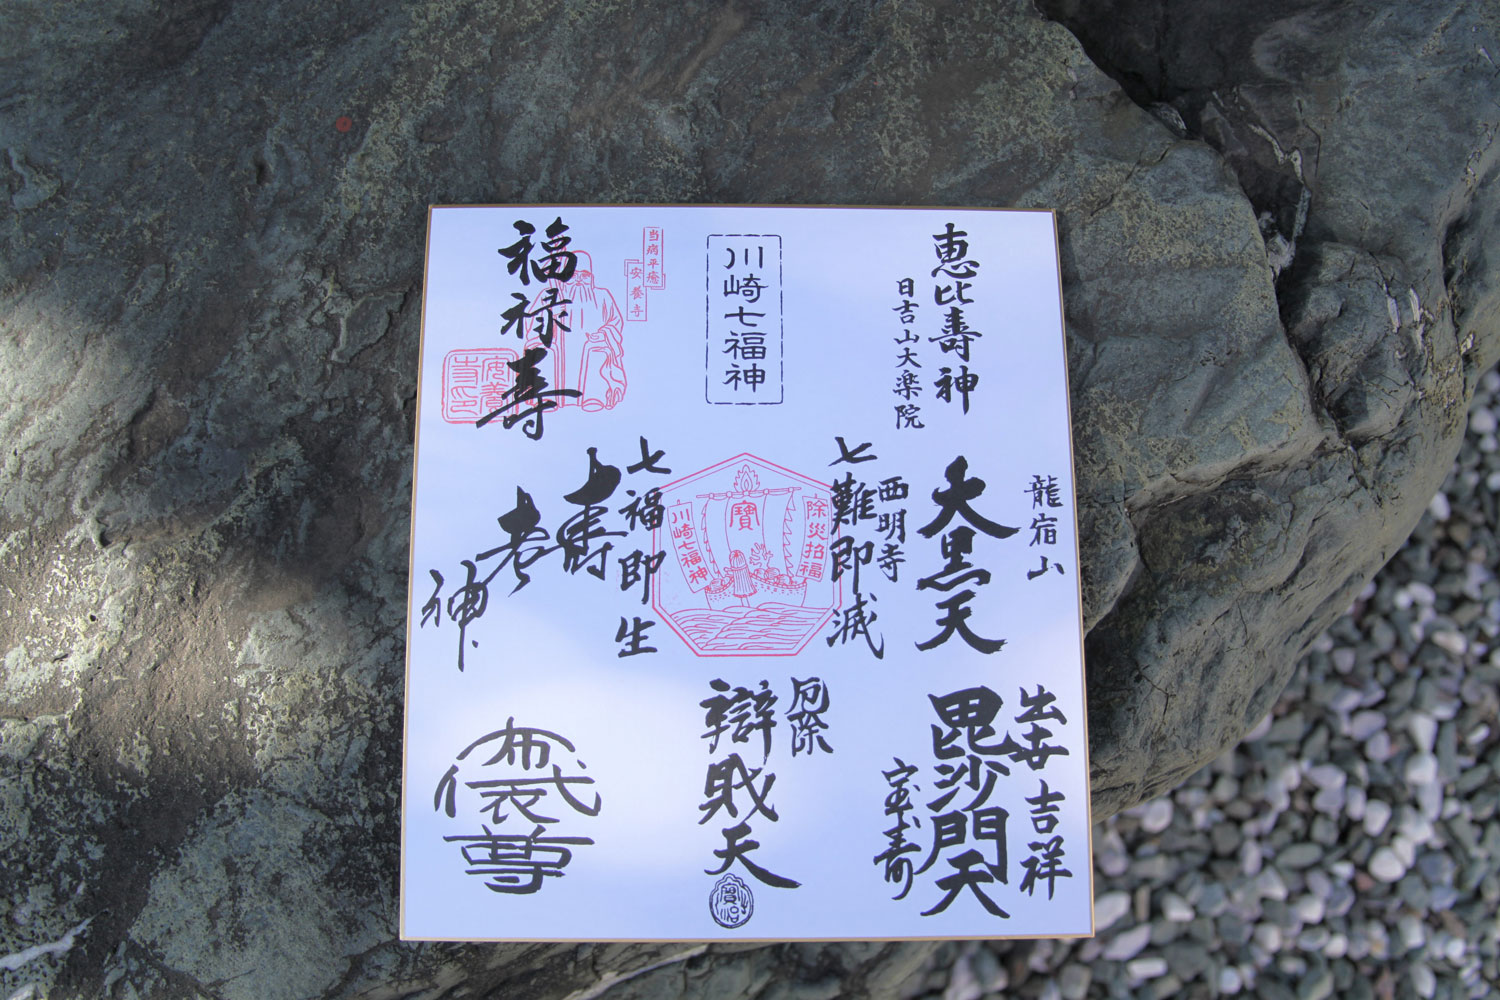 恵比壽神
日吉山大楽院
川崎七福神
当病平癒
安養寺
福禄寿
安養寺印
龍宿山
大黒天
西明寺
七難即滅
除災招福
寶
川崎七福神
七福即生
寿老神
吉祥
毘沙門天
宝寿
厄除
辯財天
布袋尊